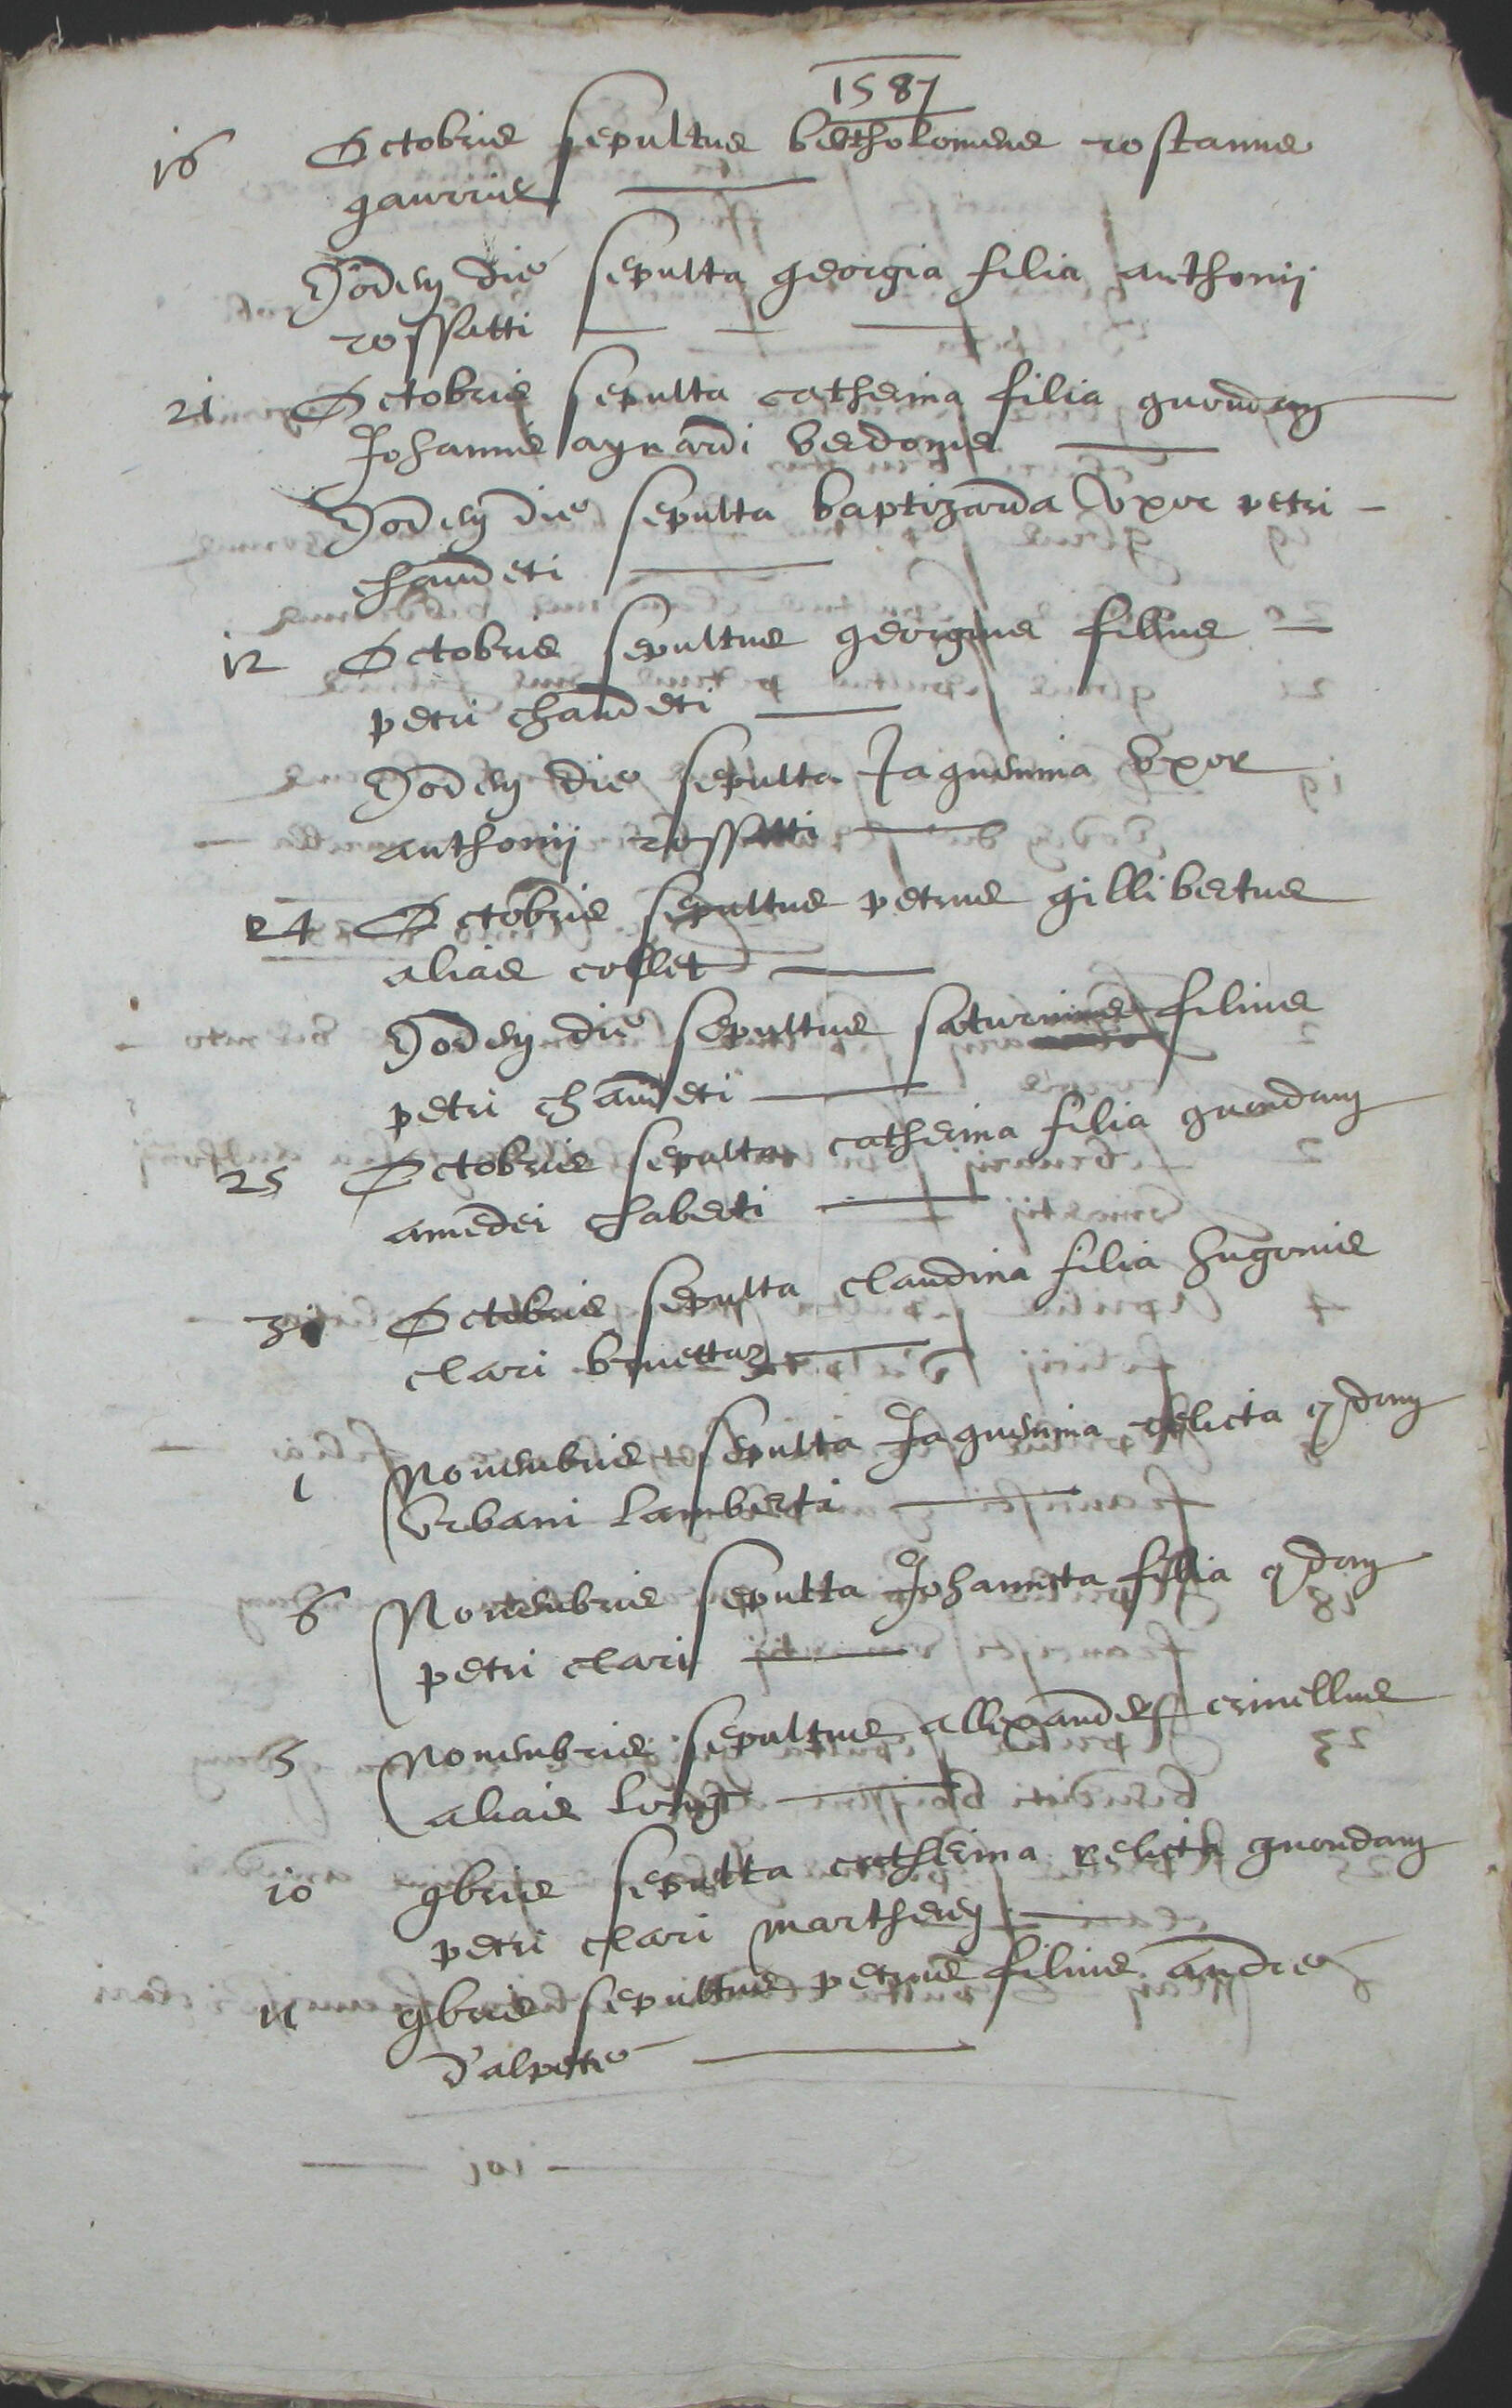 1587
16 Octobris sepultus bertholomeus rostannus
gaurrus
Eodem die sepulta georgia filia anthonii
rossetti
21 Octobris sepulta catherina filia quondam
Johannis aynardi verdonis
Eodem die sepulta baptizarda uxor petri
chaudeti
12 Octobris sepultus georgius filius
petri chaudeti
Eodem die sepulta Jaquemina uxor
anthonii rossetti
24 Octobris sepultus petrus gillibertus
alias collet
Eodem die sepultus saturninus filius
petri chaudeti
25 Octobris sepulta catherina filia quondam
amedei chaberti
31 Octobris sepulta claudina filia hugonis
clari bruettaz
1 Novembris sepulta Jaquemina relicta qdam
urbani lamberti
6 Novembris sepulta Johanneta filia qdam
petri clari
5 Novembris sepultus allexander crinellus
alias long
10 9bris sepulta catherina relicta quondam
petri clari martherey
11 9bris sepultus petrus filius andree
d'alpette